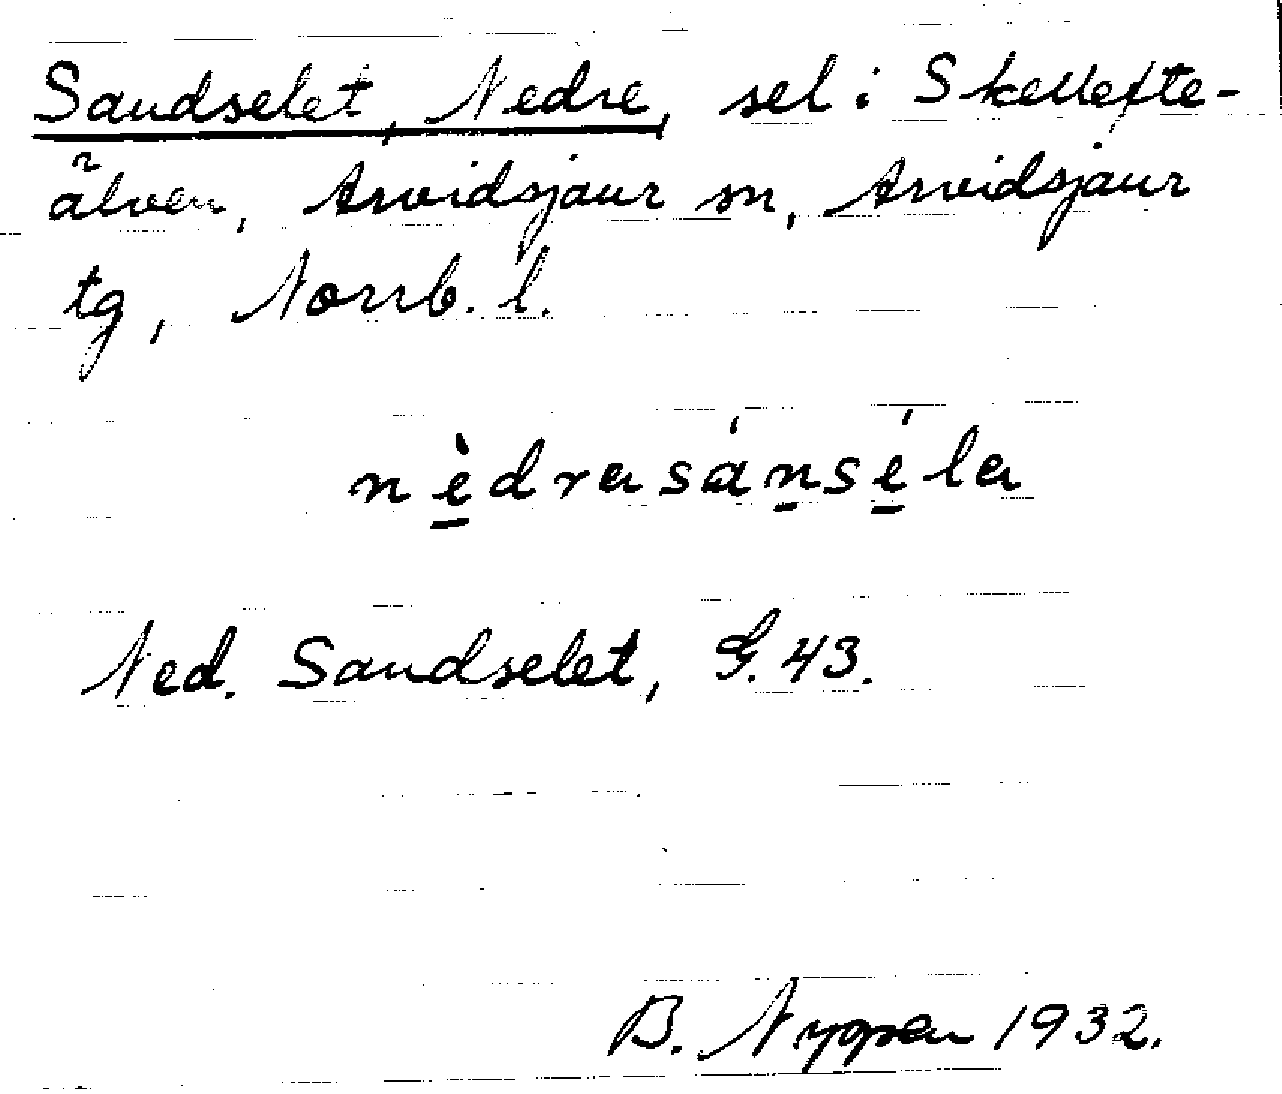 Sandselet, Nedre, sel i Skellefte-
älven, Arvidsjaur sn, Arvidsjaur
tg, Norrb. l.
nèdrasánséla
Ned. Sandselet, G. 43.
B. 1932.